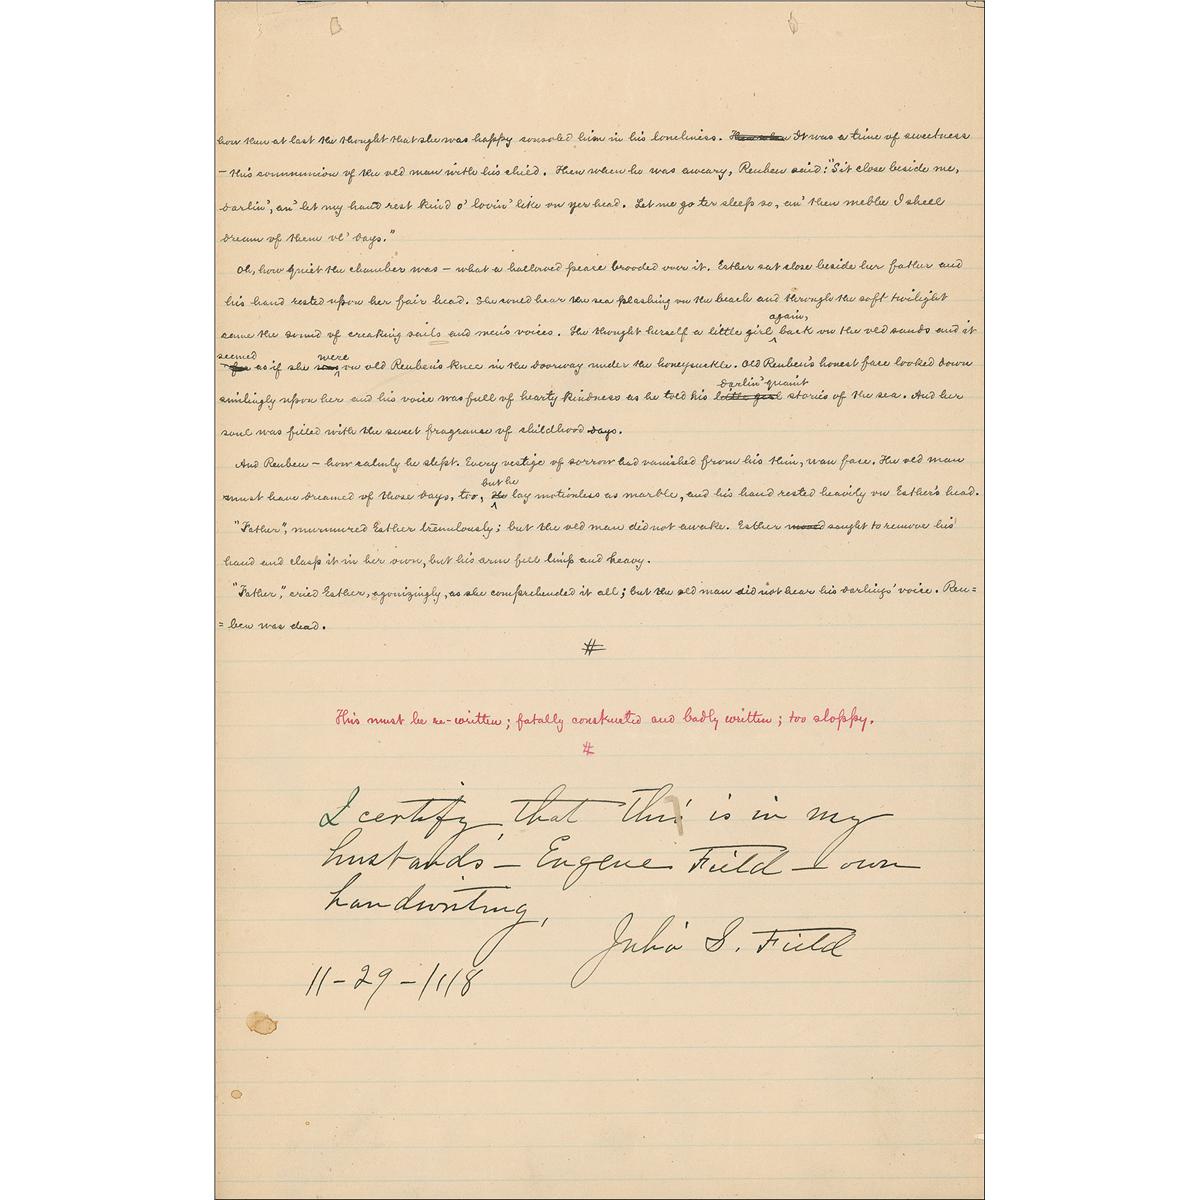 how then at last the thought that she was happy consoled him in his loneliness. It was a time of sweetness
— this communion of the old man with his child. Then when he was aweary, Reuben said: "Sit close beside me,
darlin', an' let my hand rest kind o' lovin' like on yer head. Let me go ter sleep so, an' then mebbe I shell
dream of them ol' days."
Oh, how quiet the chamber was — what a hallowed peace brooded over it. Esther sat close beside her father and
his hand rested upon her fair head. She could hear the sea plashing on the beach and through the soft twilight
again,
came the sound of creaking sails and men's voices. She thought herself a little girl back on the old sands and it
seemed were
as if she was on old Reuben's knee in the doorway under the honeysuckle. Old Reuben's honest face looked down
darlin' quaint
smilingly upon her and his voice was full of hearty kindness as he told his little girl stories of the sea. And her
soul was filled with the sweet fragrance of childhood days.
And Reuben — how calmly he slept. Every vestige of sorrow had vanished from his thin, wan face. The old man
but he
must have dreamed of those days, too, He lay motionless as marble, and his hand rested heavily on Esther's head.
"Father", murmured Esther tremulously; but the old man did not awake. Esther moved sought to remove his
hand and clasp it in her own, but his arm fell limp and heavy.
"Father", cried Esther, agonizingly, as she comprehended it all; but the old man did not hear his darlings' voice. Reu=
=ben was dead.
#
This must be re-written; fatally constructed and badly written; too sloppy.
#
I certify that this is in my
husbands — Eugene Field — own
handwriting,
Julia S. Field
11-29-1118